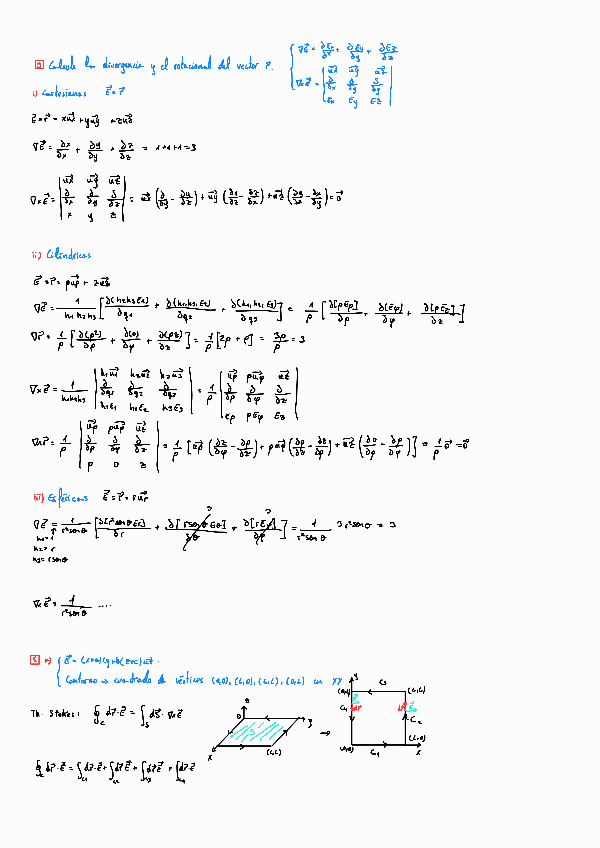 2 Calcule la divergencia y el rotacional del vector r⃗.
∇E⃗ = ∂Ex/∂x + ∂Ey/∂y + ∂Ez/∂z
∇xE⃗ = | u⃗x u⃗y u⃗z ; ∂/∂x ∂/∂y ∂/∂y ; Ex Ey Ez |
i) Cartesianas E⃗=r⃗
E⃗=r⃗ = xu⃗x + yu⃗y + zu⃗z
∇E⃗ = ∂x/∂x + ∂y/∂y + ∂z/∂z = 1+1+1=3
∇xE⃗ = | u⃗x u⃗y u⃗z ; ∂/∂x ∂/∂y ∂/∂z ; x y z | = u⃗x (∂z/∂y - ∂y/∂z) + u⃗y (∂x/∂z - ∂z/∂x) + u⃗z (∂y/∂x - ∂x/∂y) = 0⃗
ii) Cilíndricas
E⃗=r⃗ = ρu⃗ρ + zu⃗z
∇E⃗ = 1/h1h2h3 [∂(h2h3E1)/∂q1 + ∂(h1h3E2)/∂q2 + ∂(h1h2E3)/∂q3] = 1/ρ [∂[ρEρ]/∂ρ + ∂[Eφ]/∂φ + ∂[ρEz]/∂z]
∇r⃗ = 1/ρ [∂(ρ²)/∂ρ + ∂(0)/∂φ + ∂(ρz)/∂z] = 1/ρ [2ρ + ρ] = 3ρ/ρ = 3
∇xE⃗ = 1/h1h2h3 | h1u⃗1 h2u⃗2 h3u⃗3 ; ∂/∂q1 ∂/∂q2 ∂/∂q3 ; h1E1 h2E2 h3E3 | = 1/ρ | u⃗ρ ρu⃗φ u⃗z ; ∂/∂ρ ∂/∂φ ∂/∂z ; Eρ ρEφ Ez |
∇xr⃗ = 1/ρ | u⃗ρ ρu⃗φ u⃗z ; ∂/∂ρ ∂/∂φ ∂/∂z ; ρ 0 z | = 1/ρ [u⃗ρ (∂z/∂φ - ∂0/∂z) + ρu⃗φ (∂ρ/∂z - ∂z/∂ρ) + u⃗z (∂0/∂ρ - ∂ρ/∂φ)] = 1/ρ 0⃗ = 0⃗
iii) Esféricas E⃗=r⃗=ru⃗r
∇E⃗ = 1/r²senθ [∂[r²senθEr]/∂r + ∂[rsenθEθ]/∂θ + ∂[rEφ]/∂φ] = 1/r²senθ 3r²senθ = 3
h1=1
h2= r
h3= rsenθ
∇xE⃗ = 1/r²senθ ....
Contorno → cuadrado de vértices (0,0), (L,0), (L,L), (0,L) en XY
Th. Stokes: ∮c dr⃗·E⃗ = ∫s dS⃗·∇xE⃗
∮c dr⃗·E⃗ = ∫c1 dr⃗·E⃗ + ∫c2 dr⃗·E⃗ + ∫c3 dr⃗·E⃗ + ∫c4 dr⃗·E⃗
x y (L,L)
y C3 (L,L) C2 (L,0) C1 x (0,0)